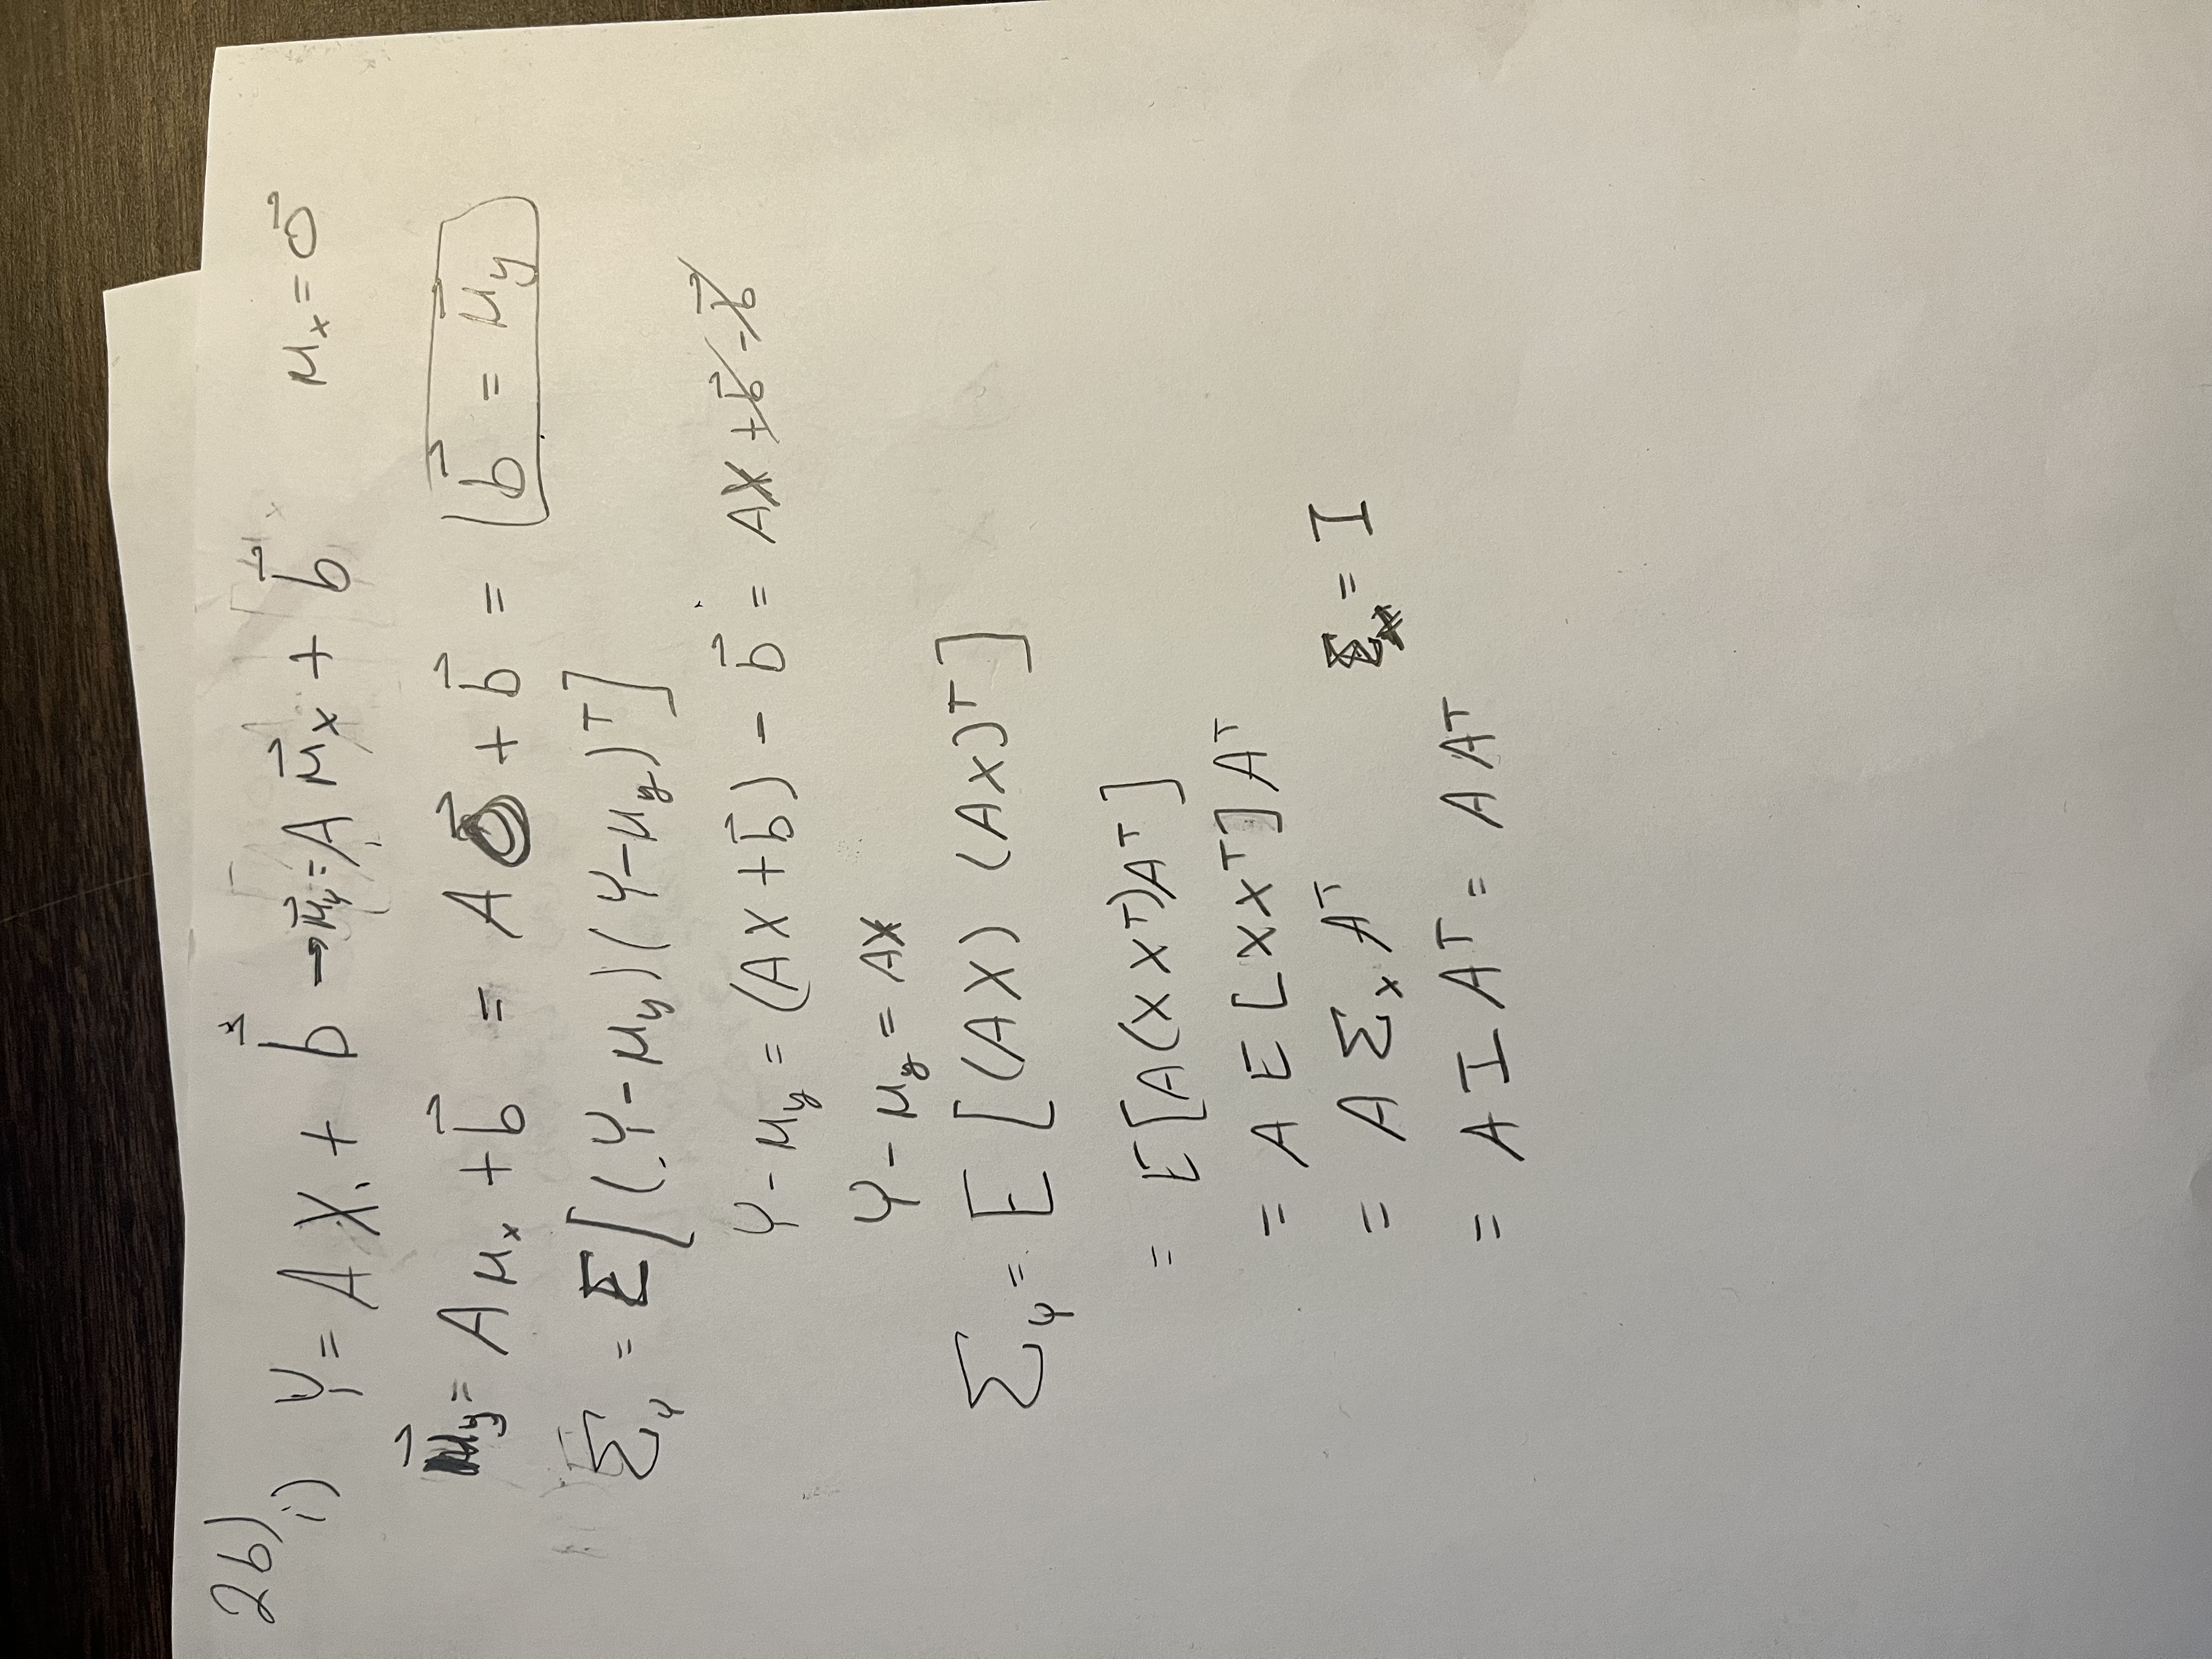 2b)
i) Y = AX + b⃗ → μ⃗y = A μ⃗x + b⃗ μx = 0⃗
μ⃗y = A μx + b⃗ = A 0⃗ + b⃗ = b⃗ = μ⃗y
Σy = E[(Y - μy)(Y - μy)ᵀ]
Y - μy = (AX + b⃗) - b⃗ = AX + b⃗ - b⃗
Y - μy = AX
Σy = E[(AX) (AX)ᵀ]
= E[A(XXᵀ)Aᵀ]
= A E[XXᵀ]Aᵀ
= A Σx Aᵀ Σx = I
= A I Aᵀ = A Aᵀ